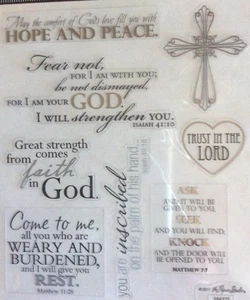 May the comfort of God's love fill you with
HOPE AND PEACE.
Fear not,
FOR I AM WITH YOU;
be not dismayed,
FOR I AM YOUR GOD.
I WILL strengthen YOU.
ISAIAH 41:10
TRUST IN THE
LORD
Great strength
comes
from faith
in God.
you are inscribed
on the palm of his hand...
ASK
AND IT WILL BE
GIVEN TO YOU,
SEEK
AND YOU WILL FIND,
KNOCK
AND THE DOOR WILL
BE OPENED TO YOU.
MATTHEW 7:7
Come to me,
all you who are
WEARY AND
BURDENED,
and I will give you
REST.
Matthew 11:28
©2011